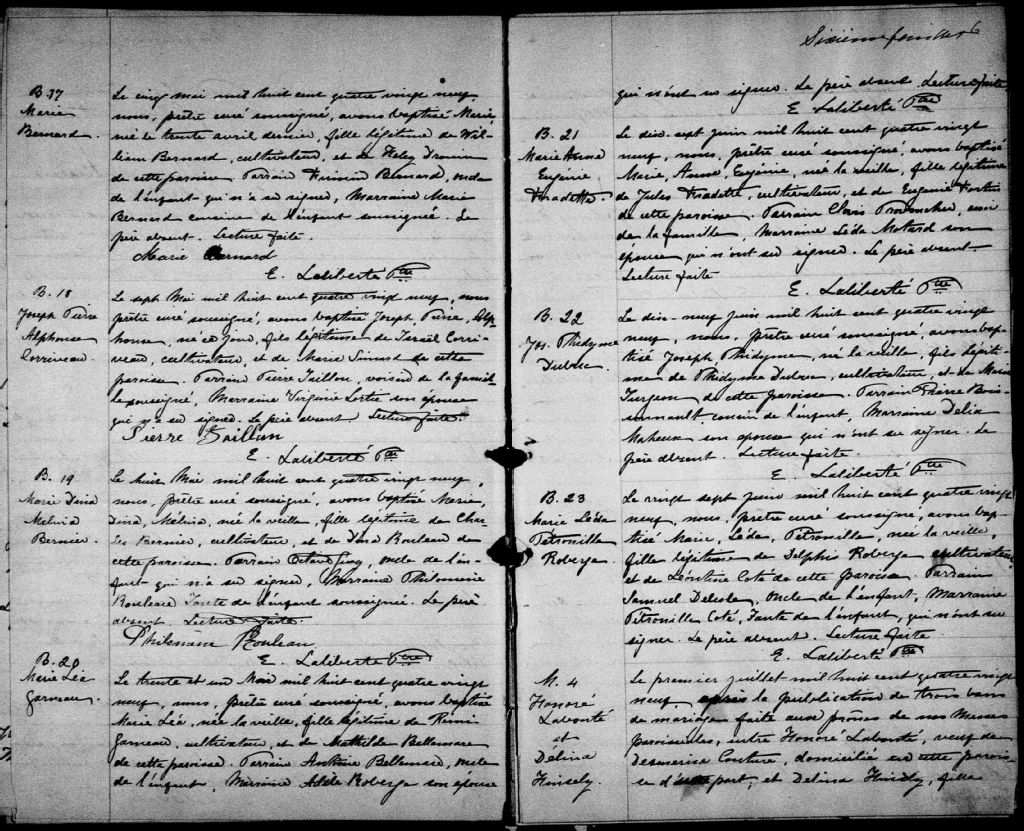 B. 17
Marie
Bernard.
Le cinq mai mil huit cent quatre vingt neuf,
nous, prêtre curé soussigné, avons baptisé Marie,
née le trente avril dernier, fille légitime de Wil-
liam Bernard, cultivateur, et de Drouin
de cette paroisse. Parrain Firmin Bernard, oncle
de l'enfant qui n'a su signer, Marraine Marie
Bernard cousine de l'enfant soussignée. Le
père absent. Lecture faite.
Marie Bernard
E. Laliberté Ptre
B. 18
Joseph Pierre
Alphonse
Corriveau.
Le sept Mai mil huit cent quatre vingt neuf, nous
prêtre curé soussigné, avons baptisé Joseph, Pierre, Alp-
honse, né ce jour, fils légitime de Israël Corri-
veau, cultivateur, et de Marie Simard de cette
paroisse. Parrain Pierre Taillon, voisin de la famil-
le soussigné, Marraine Virginie Lortie son épouse
qui n'a su signer. Le père absent. Lecture faite.
Pierre Taillon
E. Laliberté Ptre
B. 19
Marie Dina
Mélina
Bernier.
Le huit Mai mil huit cent quatre vingt neuf,
nous, prêtre curé soussigné, avons baptisé Marie,
Dina, Mélina, née la veille, fille légitime de Char-
les Bernier, cultivateur, et de Dina Rouleau de
cette paroisse. Parrain Octave Guay, oncle de l'en-
fant qui n'a su signer, Marraine Philomène
Rouleau Tante de l'enfant soussignée. Le père
absent. Lecture faite.
Philomène Rouleau
E. Laliberté Ptre
B. 20
Marie Léa
Garneau.
Le trente et un Mai mil huit cent quatre vingt
neuf, nous, prêtre curé soussigné, avons baptisé
Marie Léa, née la veille, fille légitime de Rémi
Garneau, cultivateur, et de Mathilde Bellemare
de cette paroisse. Parrain Antoine Bellemare, oncle
de l'enfant, Marraine Adèle Roberge son épouse
Sixième feuillet 6
qui n'ont su signer. Le père absent Lecture faite
E. Laliberté Ptre
B. 21
Marie Anne
Eugénie
Fradette.
Le dix-sept juin mil huit cent quatre vingt
neuf, nous, prêtre curé soussigné, avons baptisé
Marie, Anne, Eugénie, née la veille, fille légitime
de Jules Fradette, cultivateur, et de Eugénie Fortin
de cette paroisse. Parrain Clovis Provencher, ami
de la famille, Marraine Léda Motard son
épouse qui n'ont su signer. Le père absent.
Lecture faite
E. Laliberté Ptre
B. 22
Jos. Thidyme
Dubuc.
Le dix-neuf juin mil huit cent quatre vingt
neuf, nous, prêtre curé soussigné avons bap-
tisé Joseph Thidyme, né la veille, fils légiti-
me de Thidyme Dubuc, cultivateur, et de Marie
Turgeon de cette paroisse. Parrain Pierre Bois-
sonnault, cousin de l'enfant, Marraine Délia
Maheux son épouse qui n'ont su signer. Le
père absent. Lecture faite.
E. Laliberté Ptre
B. 23
Marie Léda
Pétronille
Roberge.
Le vingt sept juin mil huit cent quatre vingt
neuf, nous, prêtre curé soussigné, avons bap-
tisé Marie, Léda, Pétronille, née la veille,
fille légitime de Delphis Roberge cultivateur
et de Léontine Coté de cette paroisse. Parrain
Samuel Delisle, oncle de l'enfant, Marraine
Pétronille Coté, Tante de l'enfant, qui n'ont su
signer. Le père absent. Lecture faite
E. Laliberté Ptre
M. 4
Honoré
Labonté
et
Délina
Hinsely.
Le premier juillet mil huit cent quatre vingt
neuf, après la publication de trois bans
de mariage faite aux prônes de nos Messes
paroissiales, entre Honoré Labonté, veuf de
Desmerise Couture, domicilié en cette parois-
se d'une part, et Délina Hinsely, fille